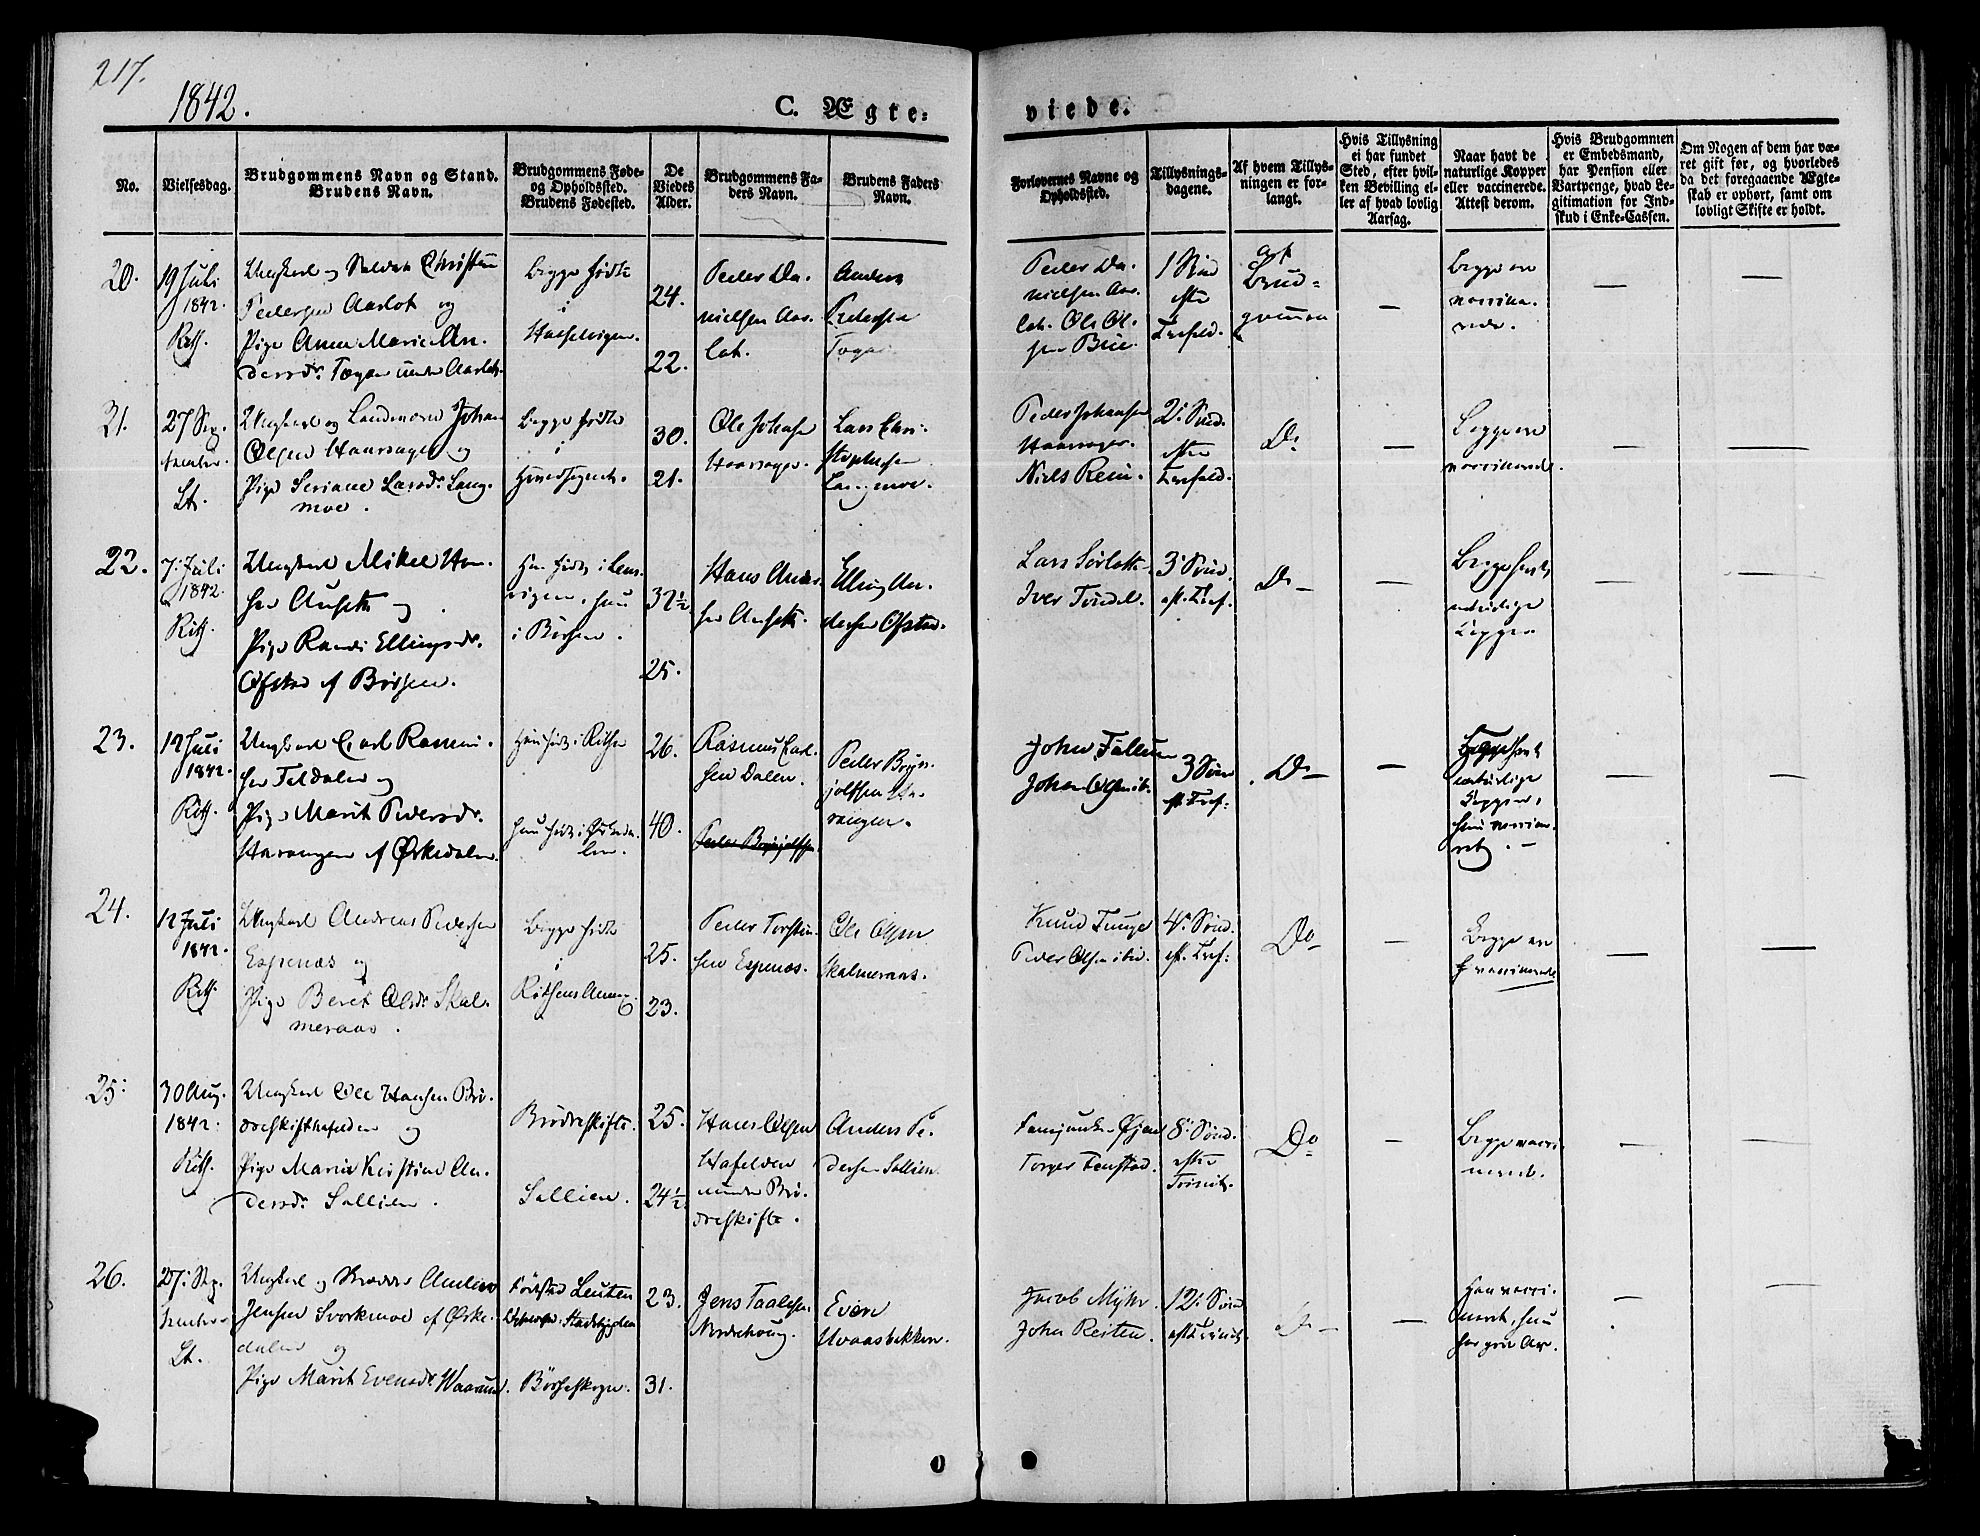 217.
1842.
C. Ægte-
viede.
No.
Vielsesdag.
Brudgommens Navn og Stand.
Brudens Navn.
Brudgommens Føde-
og Opholdssted.
Brudens Fødested.
De
Viedes
Alder.
Brudgommens Fa-
ders Navn.
Brudens Faders
Navn.
Forlovernes Navne og
Opholdssted.
Tillysnings-
dagene.
Af hvem Tillys-
ningen er for-
langt.
Hvis Tillysning
ei har fundet
Sted, efter hvil-
ken Bevilling el-
ler af hvad lovlig
Aarsag.
Naar havt de
naturlige Kopper
eller vaccinerede.
Attest derom.
Hvis Brudgommen
er Embedsmand,
har Pension eller
Vartpenge, hvad Le-
gitimation for Ind-
skud i Enke-Cassen.
Om Nogen af dem har væ-
ret gift før, og hvorledes
da det foregaaende Ægte-
skab er ophørt, samt om
lovligt Skifte er holdt.
20.
19 Juli
1842.
Rith.
Ungkarl og Soldat Christen
Pedersen Aarlot og
Pige Anne Marie An-
dersdr.
Begge fødte
i
24.
22.
Peder Da-
nielsen Aar-
lot.
Anders
Pedersen
Peder Da-
nielsen Aar-
lot. Ole Ol-
sen
1 Sønd
efter
Trefold.
af
Brud-
gommen
Begge ere
vaccine-
rede.
21.
27 Sep-
tember.
Lt.
Ungkarl og Landmand Johan
Olsen Haarsager og
Pige Seriane Larsdr. Lang-
moe.
Begge fødte
i
30.
21.
Ole Johnsen
Haarsager.
Lars Chri-
stophersen
Langmoe.
Peder Johansen
Haarsager.
Niels Rein.
2. Sønd.
efter
Trefold.
Do
Begge ere
vaccinerede.
22.
7. Juli
1842.
Rith.
Ungkarl Mikel Han-
sen Ansett og
Pige Randi Ellingsdr.
Ofstad af Børsen.
Han født i Lens-
vigen, hun
i Børsen.
32½
25.
Hans Ander-
sen Ansett.
Elling An-
dersen Ofstad.
Lars Sørlotte.
Iver Tøndel.
3. Sønd.
eft. Tref.
Do
Begge havt
naturlige
Kopper.
23.
12 Juli
1842.
Rith.
Ungkarl Carl Rasmu-
sen
Pige Marit Pedersdr.
Havangen af Ørkedalen.
Han født i Rithsen
Hun født i Ørkeda-
len.
26.
40.
Rasmus Carl-
sen Dalen.
Peder Brynjolfsen.
Peder Bryn-
jolfsen Ha-
vangen.
John
Johan Olsen ib.
3 Sønd
eft. Tref:
Do
naturlige
Kopper,
24.
12 Juli
1842.
Rith.
Ungkarl Andreas Pedersen
Espenæs og
Pige Beret Olsdr. Skal-
meraas.
Begge fødte
i
Rithsens Annex.
25.
23.
Peder Torstin-
sen Espenæs.
Ole Olsen
Skalmeraas.
Knud
Peder Olsen ibid.
4. Sønd.
eft. Tref:
Do
Begge ere
vaccinerede
25.
30 Aug.
1842.
Rith.
Ungkarl Ole Hansen Brø-
dreskifthafelden og
Pige Maria Kirstine An-
dersdr. Sollien.
Brødreskifte.
Sollien.
25.
24½
Hans Olsen
Hafelden
under Brø-
dreskifte.
Anders Pe-
dersen Sollien.
Torger Fenstad.
8. Sønd.
efter
Trinit.
Do
Begge vacci-
nerede.
26.
27. Sep-
tember
Lt.
Ungkarl og
Jensen Svorkmoe af Ørke-
dalen og
Pige Marit Evensdr.
Børseskogn.
23.
31.
Jens
Even
Hvaasbakken.
Jacob Myhr.
John Reiten.
12. Sønd
eft. Trinit.
Do
Han vacci-
neret, hun
har gode Ar.